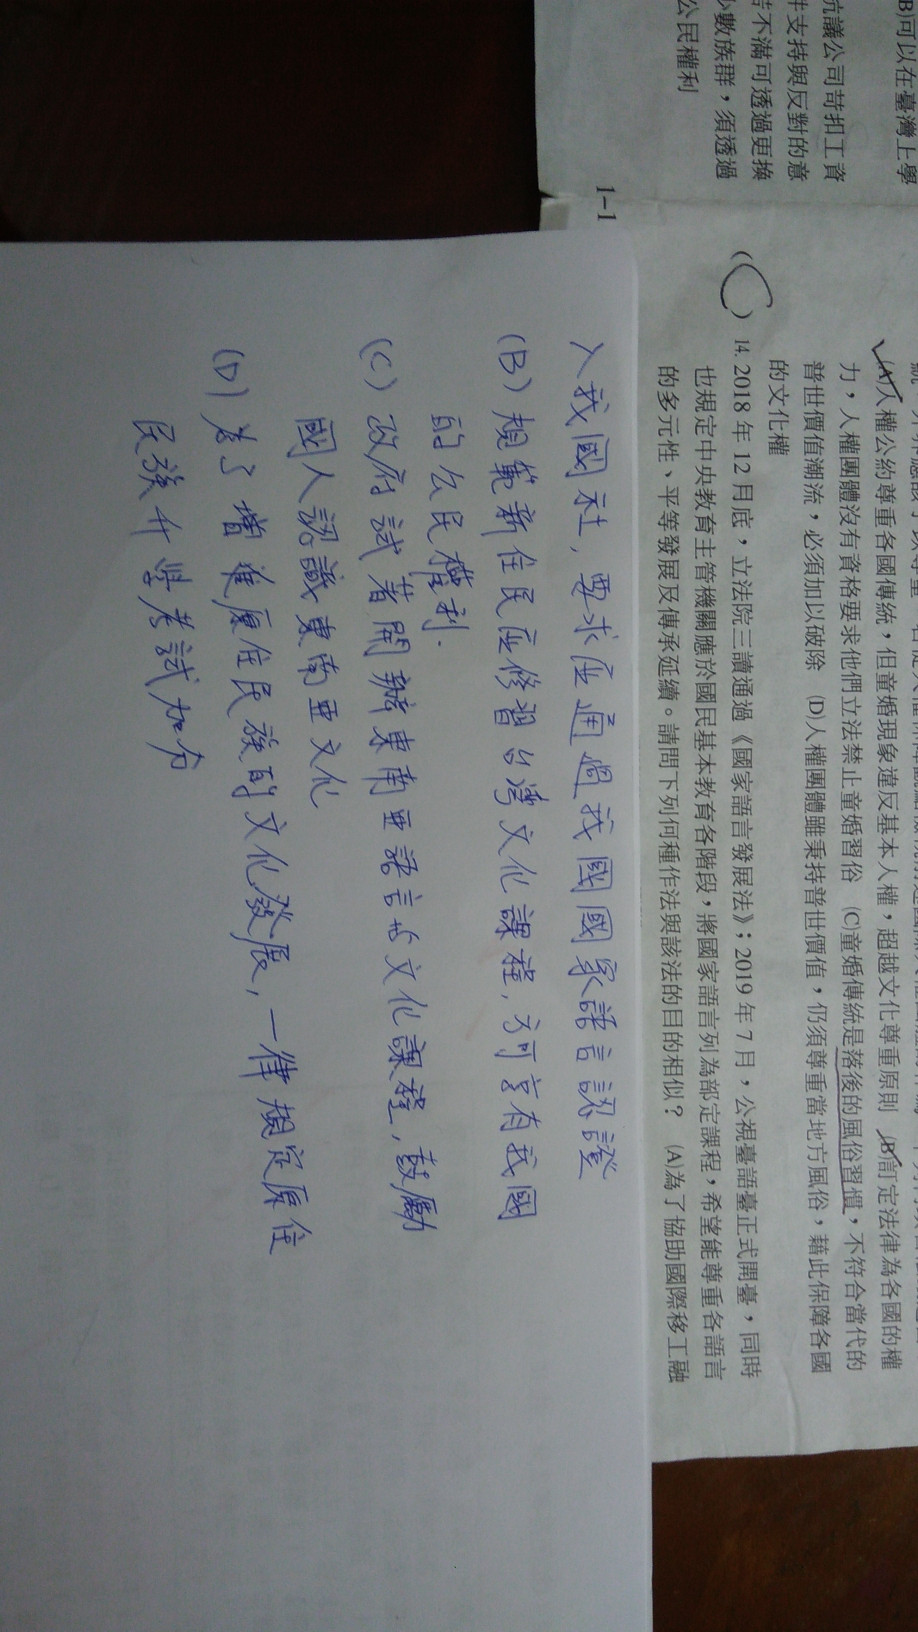 B)可以在臺灣上學
抗議公司苛扣工資
件支持與反對的意
若不滿可透過更換
少數族群，須透過
公民權利
1-1
(A)人權公約尊重各國傳統，但童婚現象違反基本人權，超越文化尊重原則 (B)訂定法律為各國的權
力，人權團體沒有資格要求他們立法禁止童婚習俗 (C)童婚傳統是落後的風俗習慣，不符合當代的
普世價值潮流，必須加以破除 (D)人權團體雖秉持普世價值，仍須尊重當地方風俗，藉此保障各國
的文化權
(C) 14. 2018 年 12 月底，立法院三讀通過《國家語言發展法》；2019 年 7 月，公視臺語臺正式開臺，同時
也規定中央教育主管機關應於國民基本教育各階段，將國家語言列為部定課程，希望能尊重各語言
的多元性、平等發展及傳承延續。請問下列何種作法與該法的目的相似？ (A)為了協助國際移工融
入我國社, 要求应通過我國國家語言認證
(B) 規範新住民应修習台灣文化課程, 方可享有我國
的公民權利.
(C) 政府試著開辦東南亚語言与文化課程, 鼓勵
國人認識東南亚文化
(D) 為了增進原住民族的文化發展, 一律規定原住
民族升學考試加分